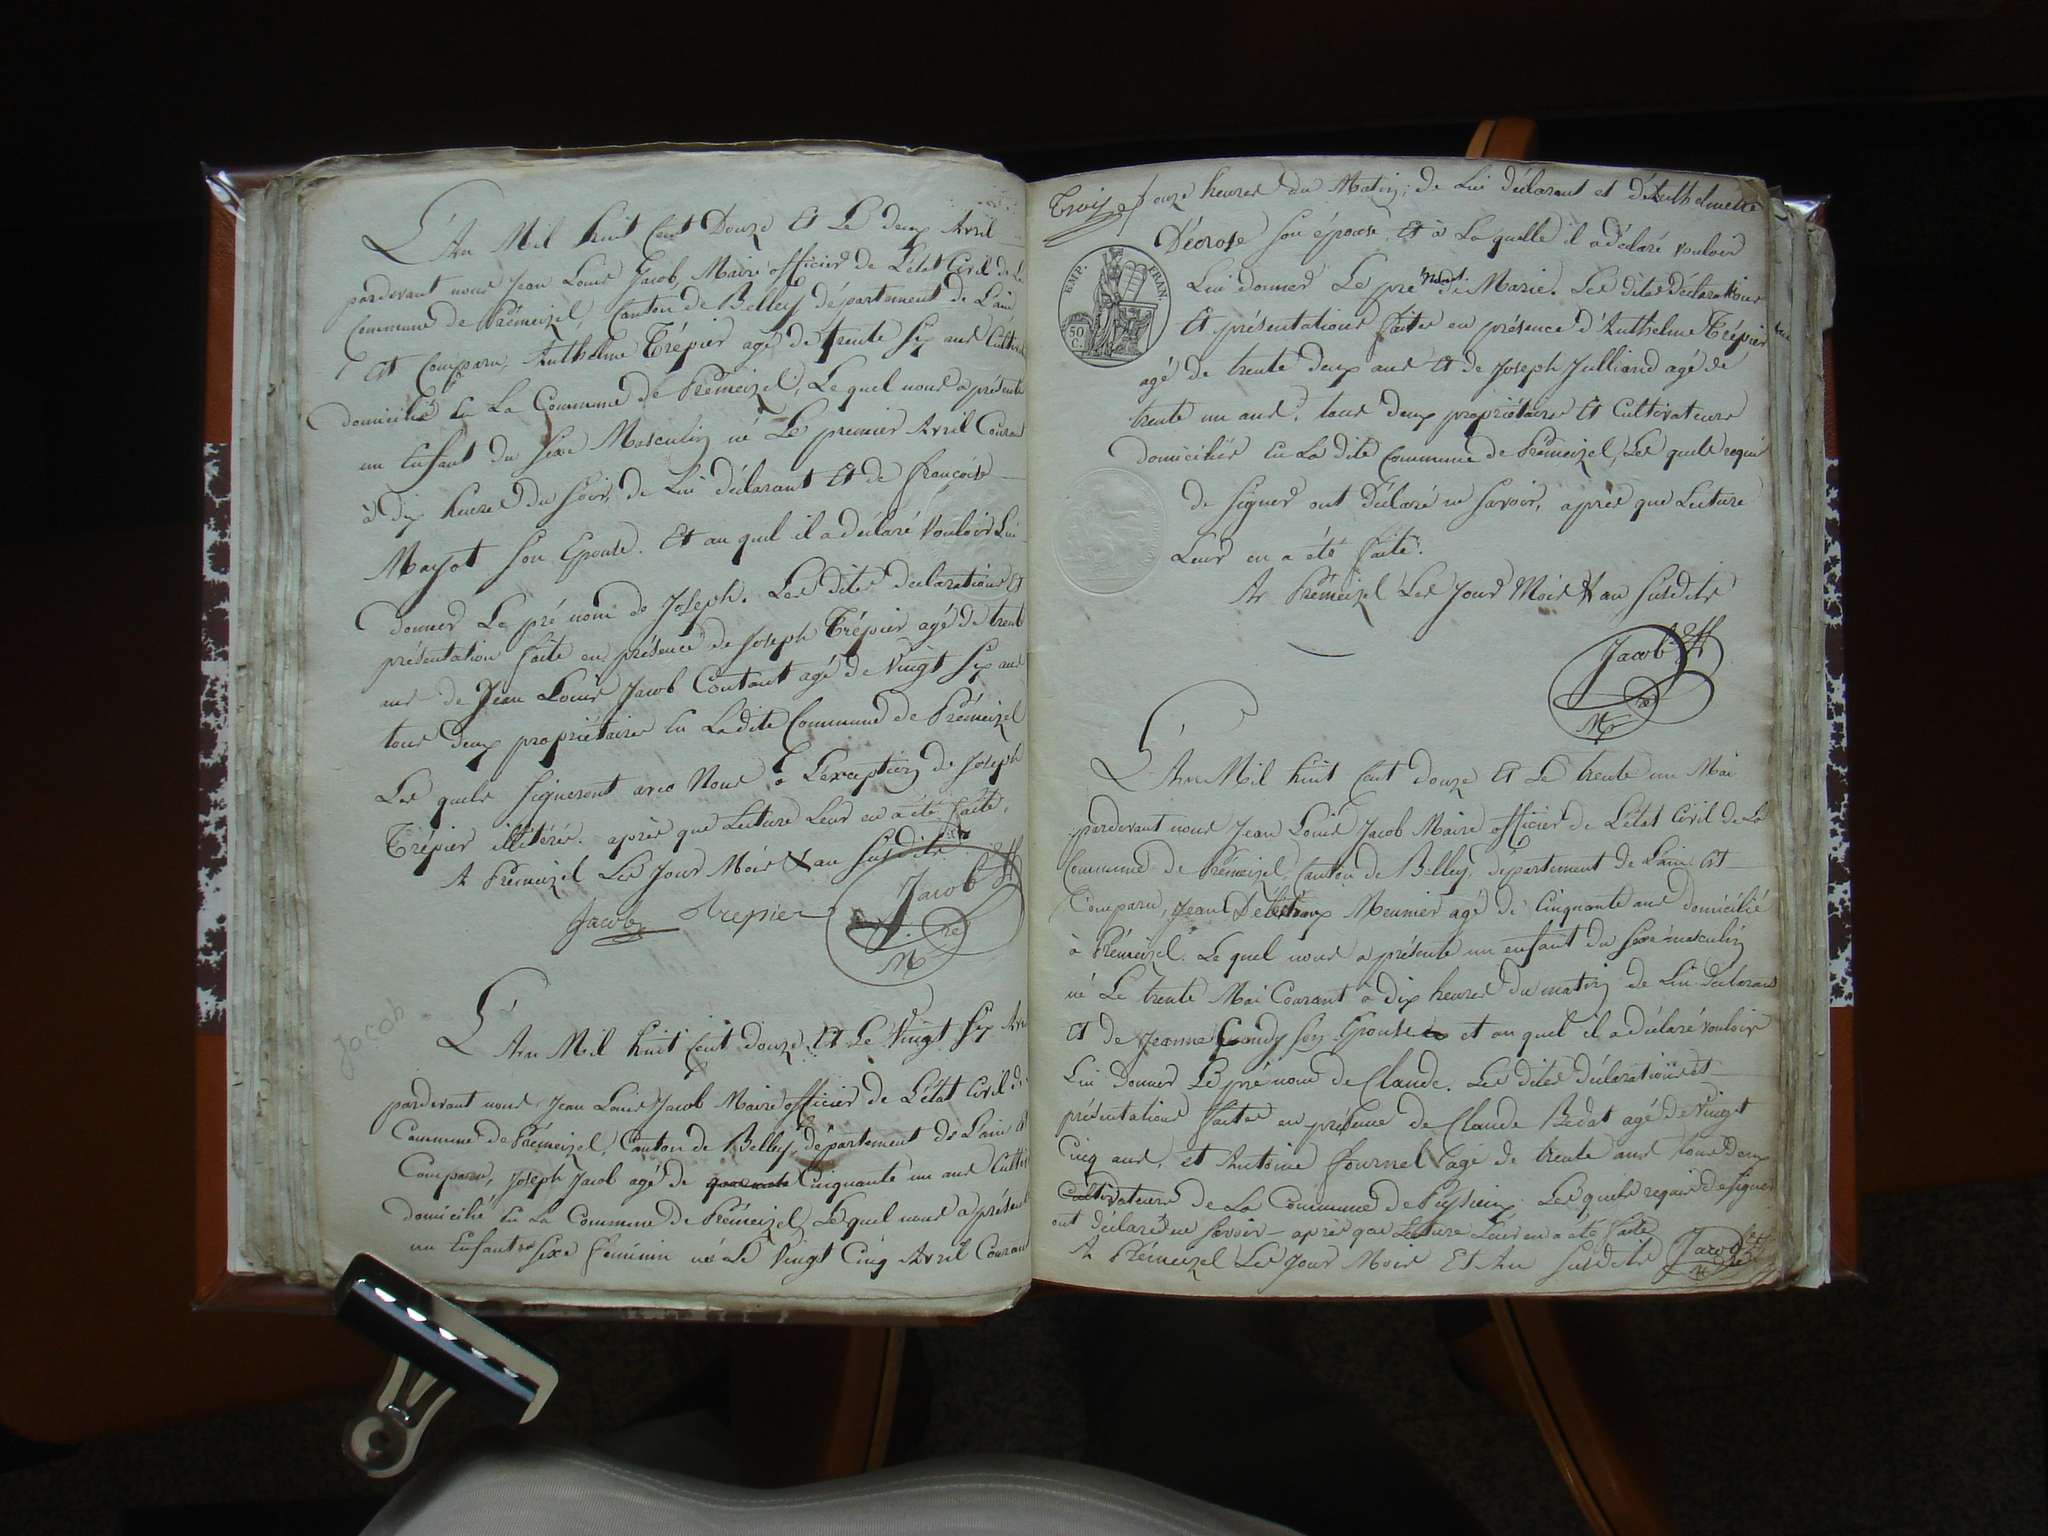 L'An Mil huit Cent Douze Et Le deux Avril
pardevant nous Jean Louis Jacob, Maire officier de L'état Civil de La
Commune de Prémeizel, Canton de Belley département de L'ain
Et Comparu, Anthelme Trépier agé de trente six ans Cultiv
domicilié En La Commune de Prémeizel, Le quel nous a présenté
un Enfant du sexe Masculin né Le premier Avril Courant
à dix heures du soir, de Lui déclarant Et de françoise
son Epouse. Et au quel il a déclaré vouloir Lui
donner Le pré nom de Joseph. Les dites déclarations Et
présentation faite en présence de Joseph Trépier agé de trente
ans de Jean Louis Jacob Contant agé de Vingt six ans
tous deux propriétaires En Ladite Commune de Prémeizel
Les quels signeront avec Nous à L'exception de Joseph
Trépier illitéré. après que Lecture Leur en a été faite.
A Prémeizel Les Jour Mois & an susdits
Jacob Trepier Jacob
Jacob
L'An Mil huit Cent douze Et Le Vingt six Avril
pardevant nous Jean Louis Jacob Maire officier de L'état Civil de
Commune de Prémeizel, Canton de Belley, département de L'ain Et
Comparu, Joseph Jacob agé de quarante Cinquante un ans Cultiv
domicilié En La Commune de Prémeizel, Le quel nous a présenté
un Enfant sexe féminin né Le Vingt Cinq Avril Courant
Trois onze heures du Matin; de Lui déclarant et d'Anthelmette
Décrose son épouse. Et à La quelle il a déclaré vouloir
Lui donner Le pré nom de Marie. Les dites Déclarations
EMP. FRAN.
50 C.
Et présentations faites en présence d'Anthelme Trépier
agé de trente deux ans Et de Joseph Julliand agé de
trente un ans, tous deux propriétaires Et Cultivateurs
domiciliés En La dite Commune de Prémeizel, Les quels requis
de signer ont déclaré ne savoir, après que Lecture
Leur en a été faite.
A Prémeizel Les Jour Mois & an susdits
Jacob
L'An Mil huit Cent douze Et Le trente un Mai
pardevant nous Jean Louis Jacob Maire officier de L'état Civil de La
Commune de Prémeizel, Canton de Belley, département de L'ain Et
Comparu, Jean Meunier agé de Cinquante ans domicilié
à Prémeizel. Le quel nous a présenté un enfant du sexe masculin
né Le trente Mai Courant à dix heures du matin de Lui déclarant
Et de Jeanne son Epouse et au quel il a déclaré vouloir
Lui donner Le pré nom de Claude. Les dites déclarations et
présentations faites en présence de Claude Bedat agé de Vingt
Cinq ans, et Antoine fournel agé de trente ans tous deux
Cultivateurs de La Commune de Peyzieux. Les quels requis de signer
ont déclaré ne savoir après que Lecture Leur en a été faite
A Prémeizel Les Jour Mois Et An susdits Jacob